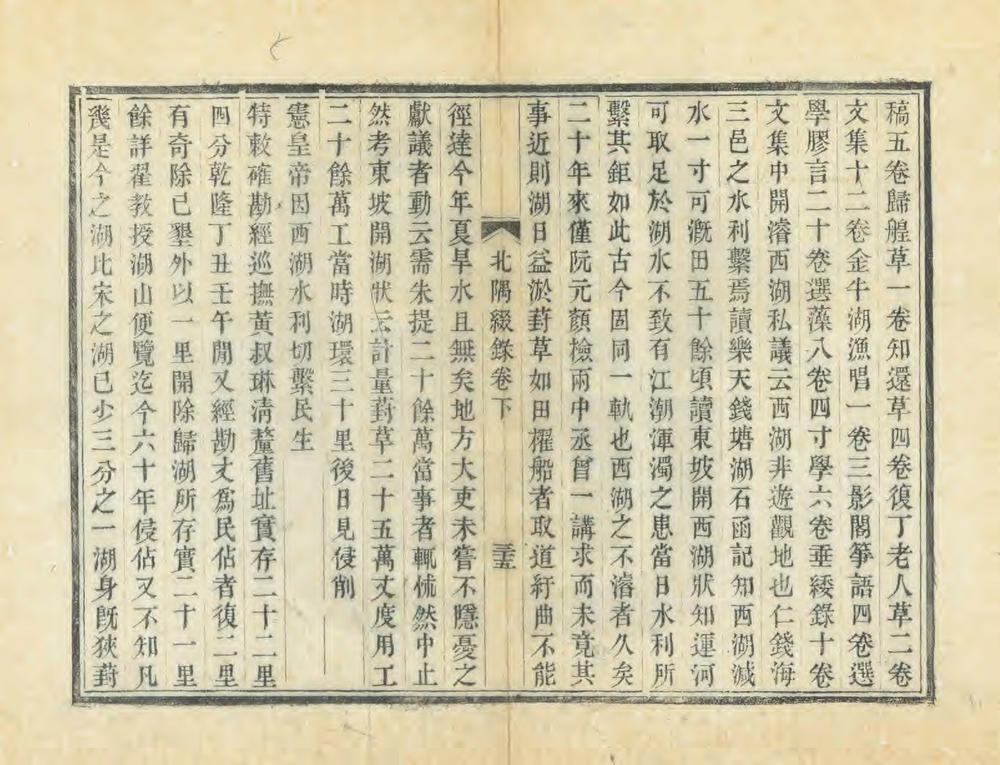 稿五卷歸艎草一卷知還草四卷復丁老人草二卷
文集十二卷金牛湖漁唱一卷三影閣箏語四卷選
學膠言二十卷選藻八卷四寸學六卷垂緌錄十卷
文集中開濬西湖私議云西湖非遊觀地也仁錢海
三邑之水利繫焉讀樂天錢塘湖石函記知西湖減
水一寸可漑田五十餘頃讀東坡開西湖狀知運河
可取足於湖水不致有江潮渾濁之患當日水利所
繫其鉅如此古今固同一軌也西湖之不濬者久矣
二十年來僅阮元顏檢兩中丞曾一講求而未竟其
事近則湖日益淤葑草如田櫂船者取道紆曲不能
北隅綴錄卷下
三五
徑達今年夏旱水且無矣地方大吏未嘗不隱憂之
獻議者動云需朱提二十餘萬當事者輒怵然中止
然考東坡開湖狀云計量葑草二十五萬丈度用工
二十餘萬工當時湖環三十里後日見侵削
憲皇帝因西湖水利切繫民生
特敕確勘經巡撫黃叔琳淸釐舊址實存二十二里
四分乾隆丁丑壬午閒又經勘丈爲民佔者復二里
有奇除已墾外以一里開除歸湖所存實二十一里
餘詳翟敎授湖山便覽迄今六十年侵佔又不知凡
幾是今之湖比宋之湖已少三分之一湖身旣狹葑